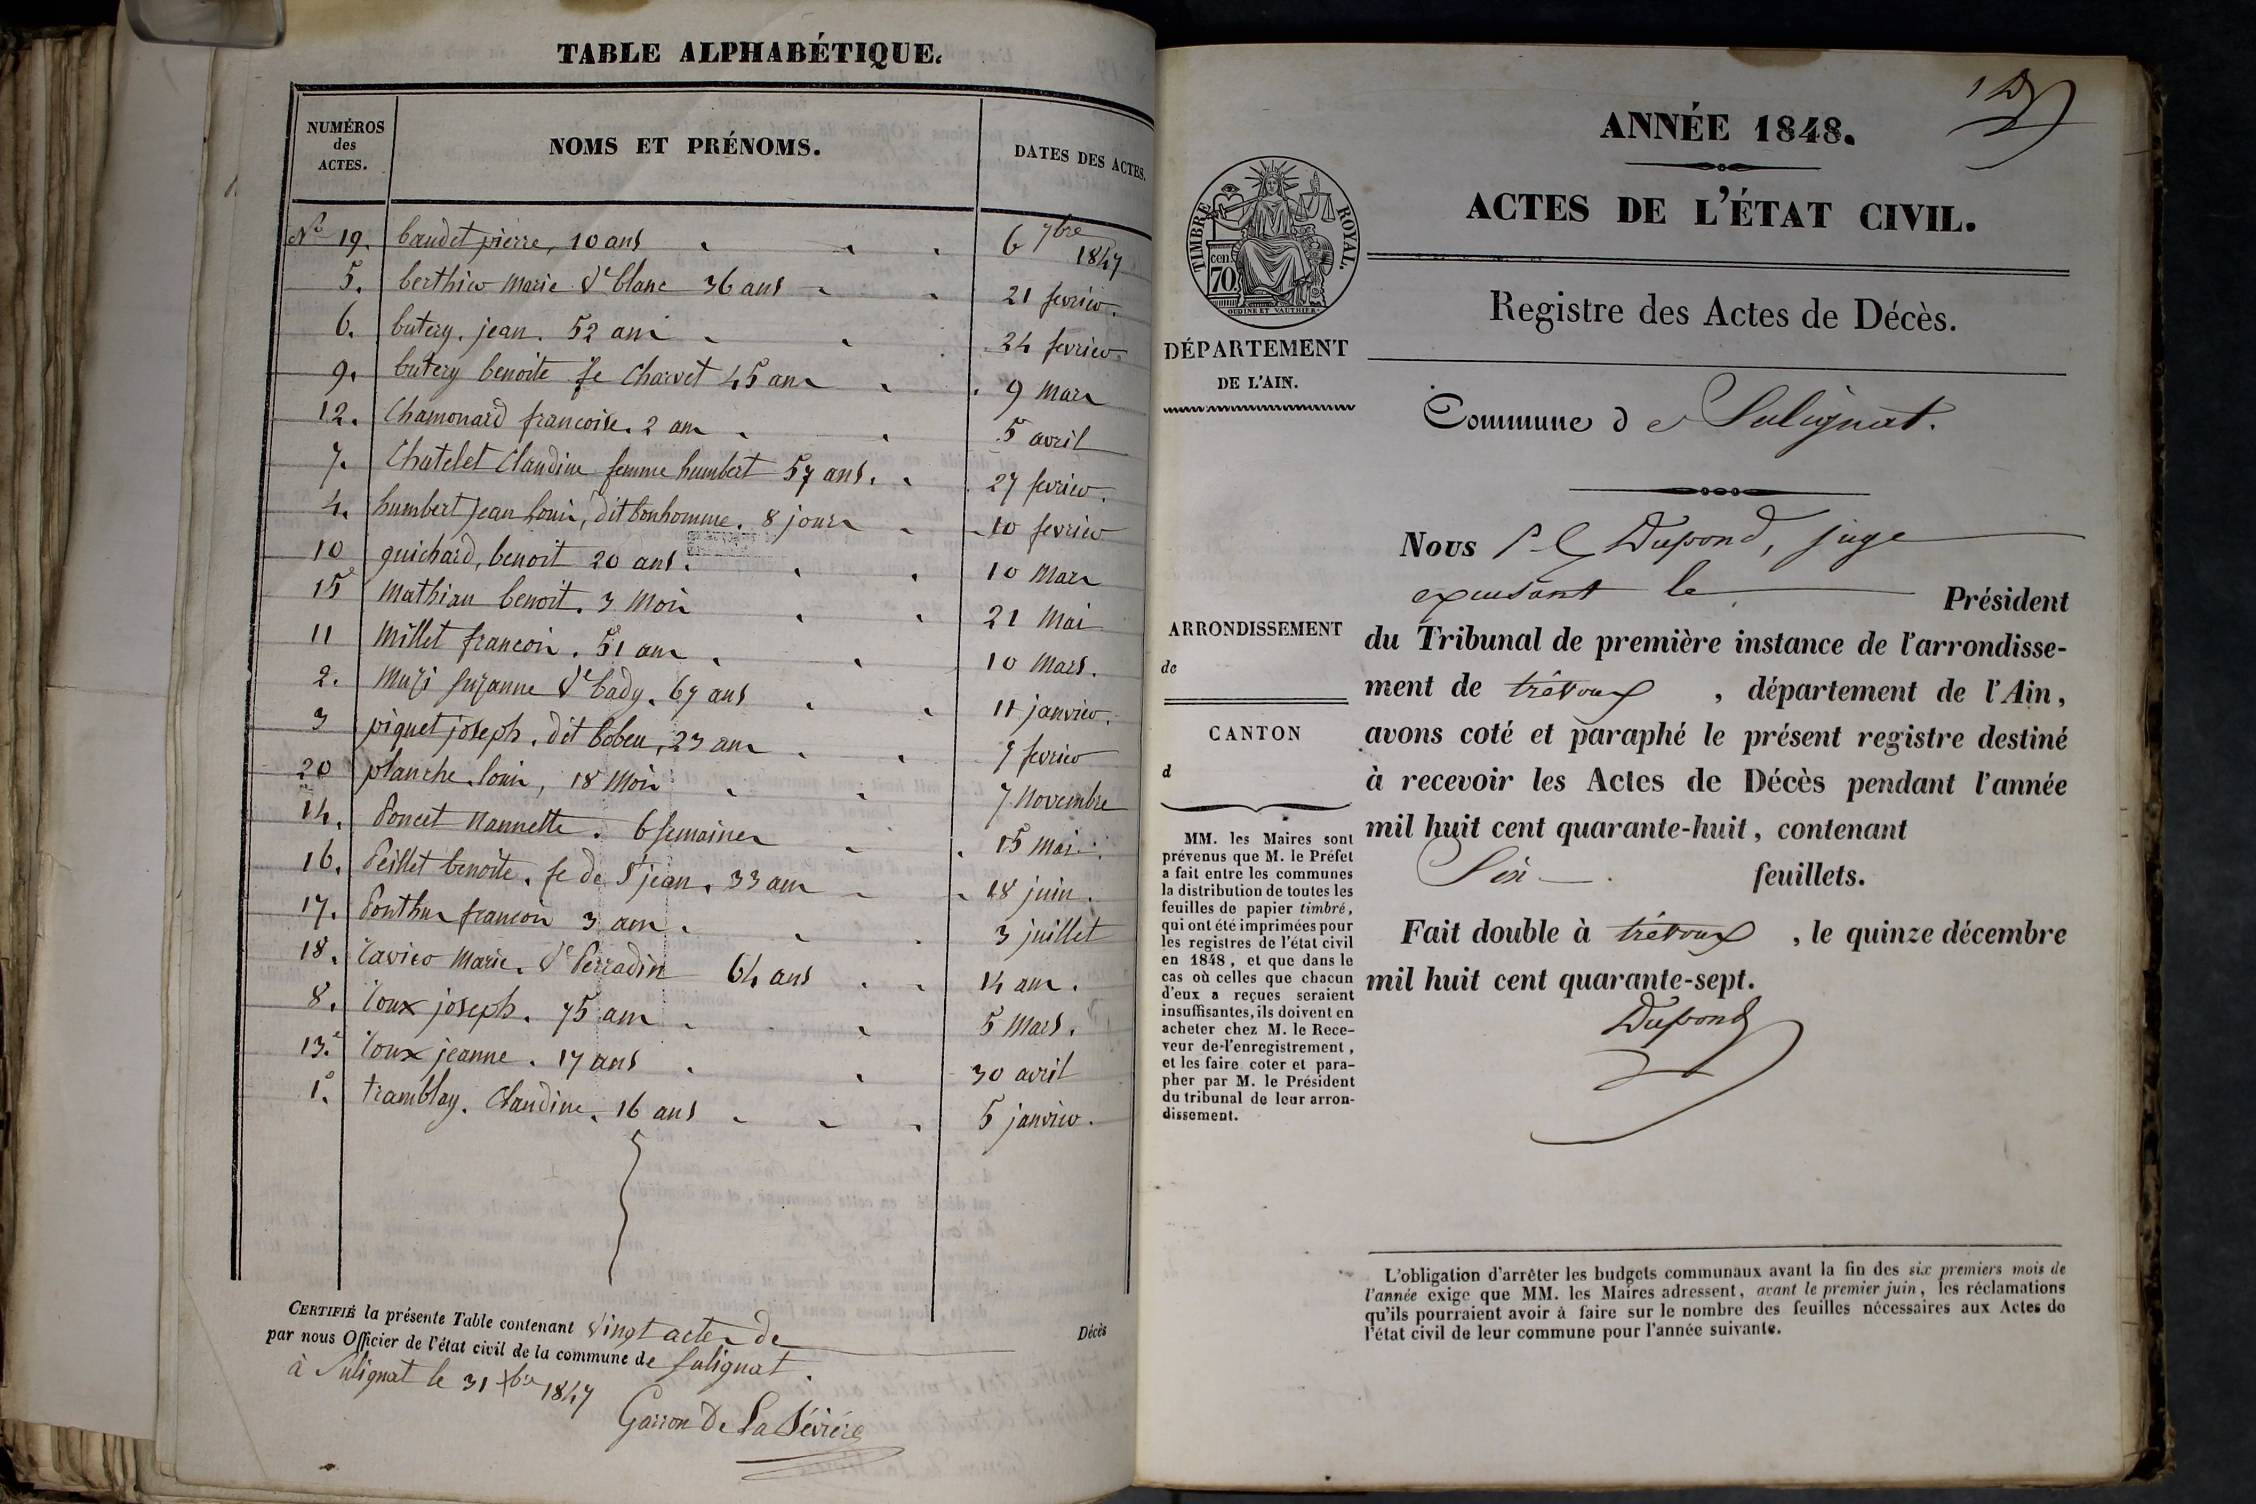 TABLE ALPHABÉTIQUE.
NUMÉROS des ACTES.
NOMS ET PRÉNOMS.
DATES DES ACTES.
No 19. baudet pierre, 10 ans 6 7bre 1847
5. berthier Marie Ve blanc 36 ans 21 fevrier.
6. butery. jean. 52 ans 24 fevrier
9. butery benoite fe Charvet 45 ans 9 Mars
12. Chamonard francoise. 2 ans 5 avril
7. Chatelet Claudine femme humbert 57 ans. 27 fevrier.
4. humbert jean louis, dit bonhomme. 8 jours 10 fevrier
10 guichard, benoit 20 ans. 10 Mars
15e Mathian benoit. 3 Mois 21 Mai
11 Millet francois. 51 ans 10 Mars.
2. Muzi suzanne Ve bady. 67 ans 11 janvier.
3 piquet joseph. dit bobeu, 23 ans 9 fevrier
20 planche louis, 18 Mois 7 Novembre
14. Poncet Nannette. 6 semaines 15 Mai.
16. Peillet benoite. fe de St jean. 33 ans 18 juin.
17. Ponthus francois 3 ans. 3 juillet
18. ravier Marie. Ve Perradin 64 ans 14 am.
8. roux joseph. 75 ans 5 Mars.
13e roux jeanne. 17 ans 30 avril
1o. tramblay. Claudine. 16 ans 5 janvier.
CERTIFIÉ la présente Table contenant vingt actes de Décès
par nous Officier de l'état civil de la commune de Sulignat.
à Sulignat le 31 Xbre 1847
Garron De La Bévière
1
ANNÉE 1848.
ACTES DE L'ÉTAT CIVIL.
TIMBRE ROYAL.
cen. 70.
OUDINE ET VAUTHIER.
Registre des Actes de Décès.
DÉPARTEMENT
DE L'AIN.
Commune de Sulignat.
Nous Dupond, juge
excusant le Président
ARRONDISSEMENT
de
du Tribunal de première instance de l'arrondisse-
ment de trévoux, département de l'Ain,
CANTON
d
avons coté et paraphé le présent registre destiné
à recevoir les Actes de Décès pendant l'année
mil huit cent quarante-huit, contenant
Six feuillets.
Fait double à trévoux, le quinze décembre
mil huit cent quarante-sept.
Dupond
MM. les Maires sont
prévenus que M. le Préfet
a fait entre les communes
la distribution de toutes les
feuilles de papier timbré,
qui ont été imprimées pour
les registres de l'état civil
en 1848, et que dans le
cas où celles que chacun
d'eux a reçues seraient
insuffisantes, ils doivent en
acheter chez M. le Rece-
veur de l'enregistrement,
et les faire coter et para-
pher par M. le Président
du tribunal de leur arron-
dissement.
L'obligation d'arrêter les budgets communaux avant la fin des six premiers mois de
l'année exige que MM. les Maires adressent, avant le premier juin, les réclamations
qu'ils pourraient avoir à faire sur le nombre des feuilles nécessaires aux Actes de
l'état civil de leur commune pour l'année suivante.